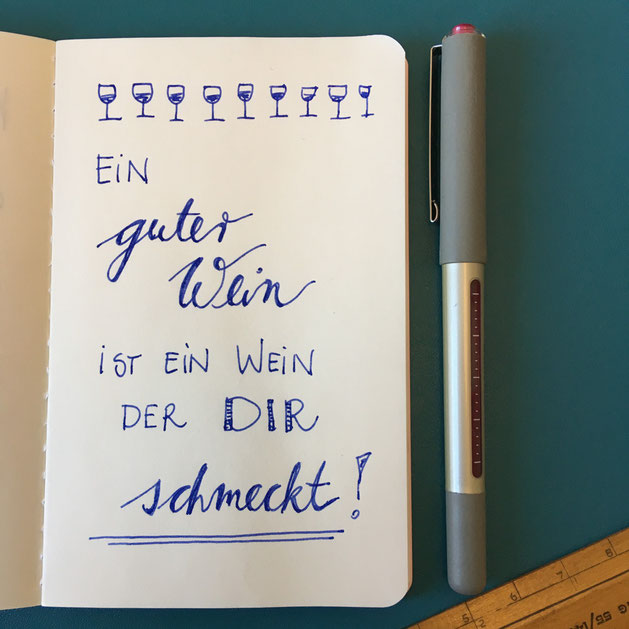 EiN
guter
Wein
iST EiN WEiN
DER DIR
schmeckt!
5 6 7 8
NG 55/